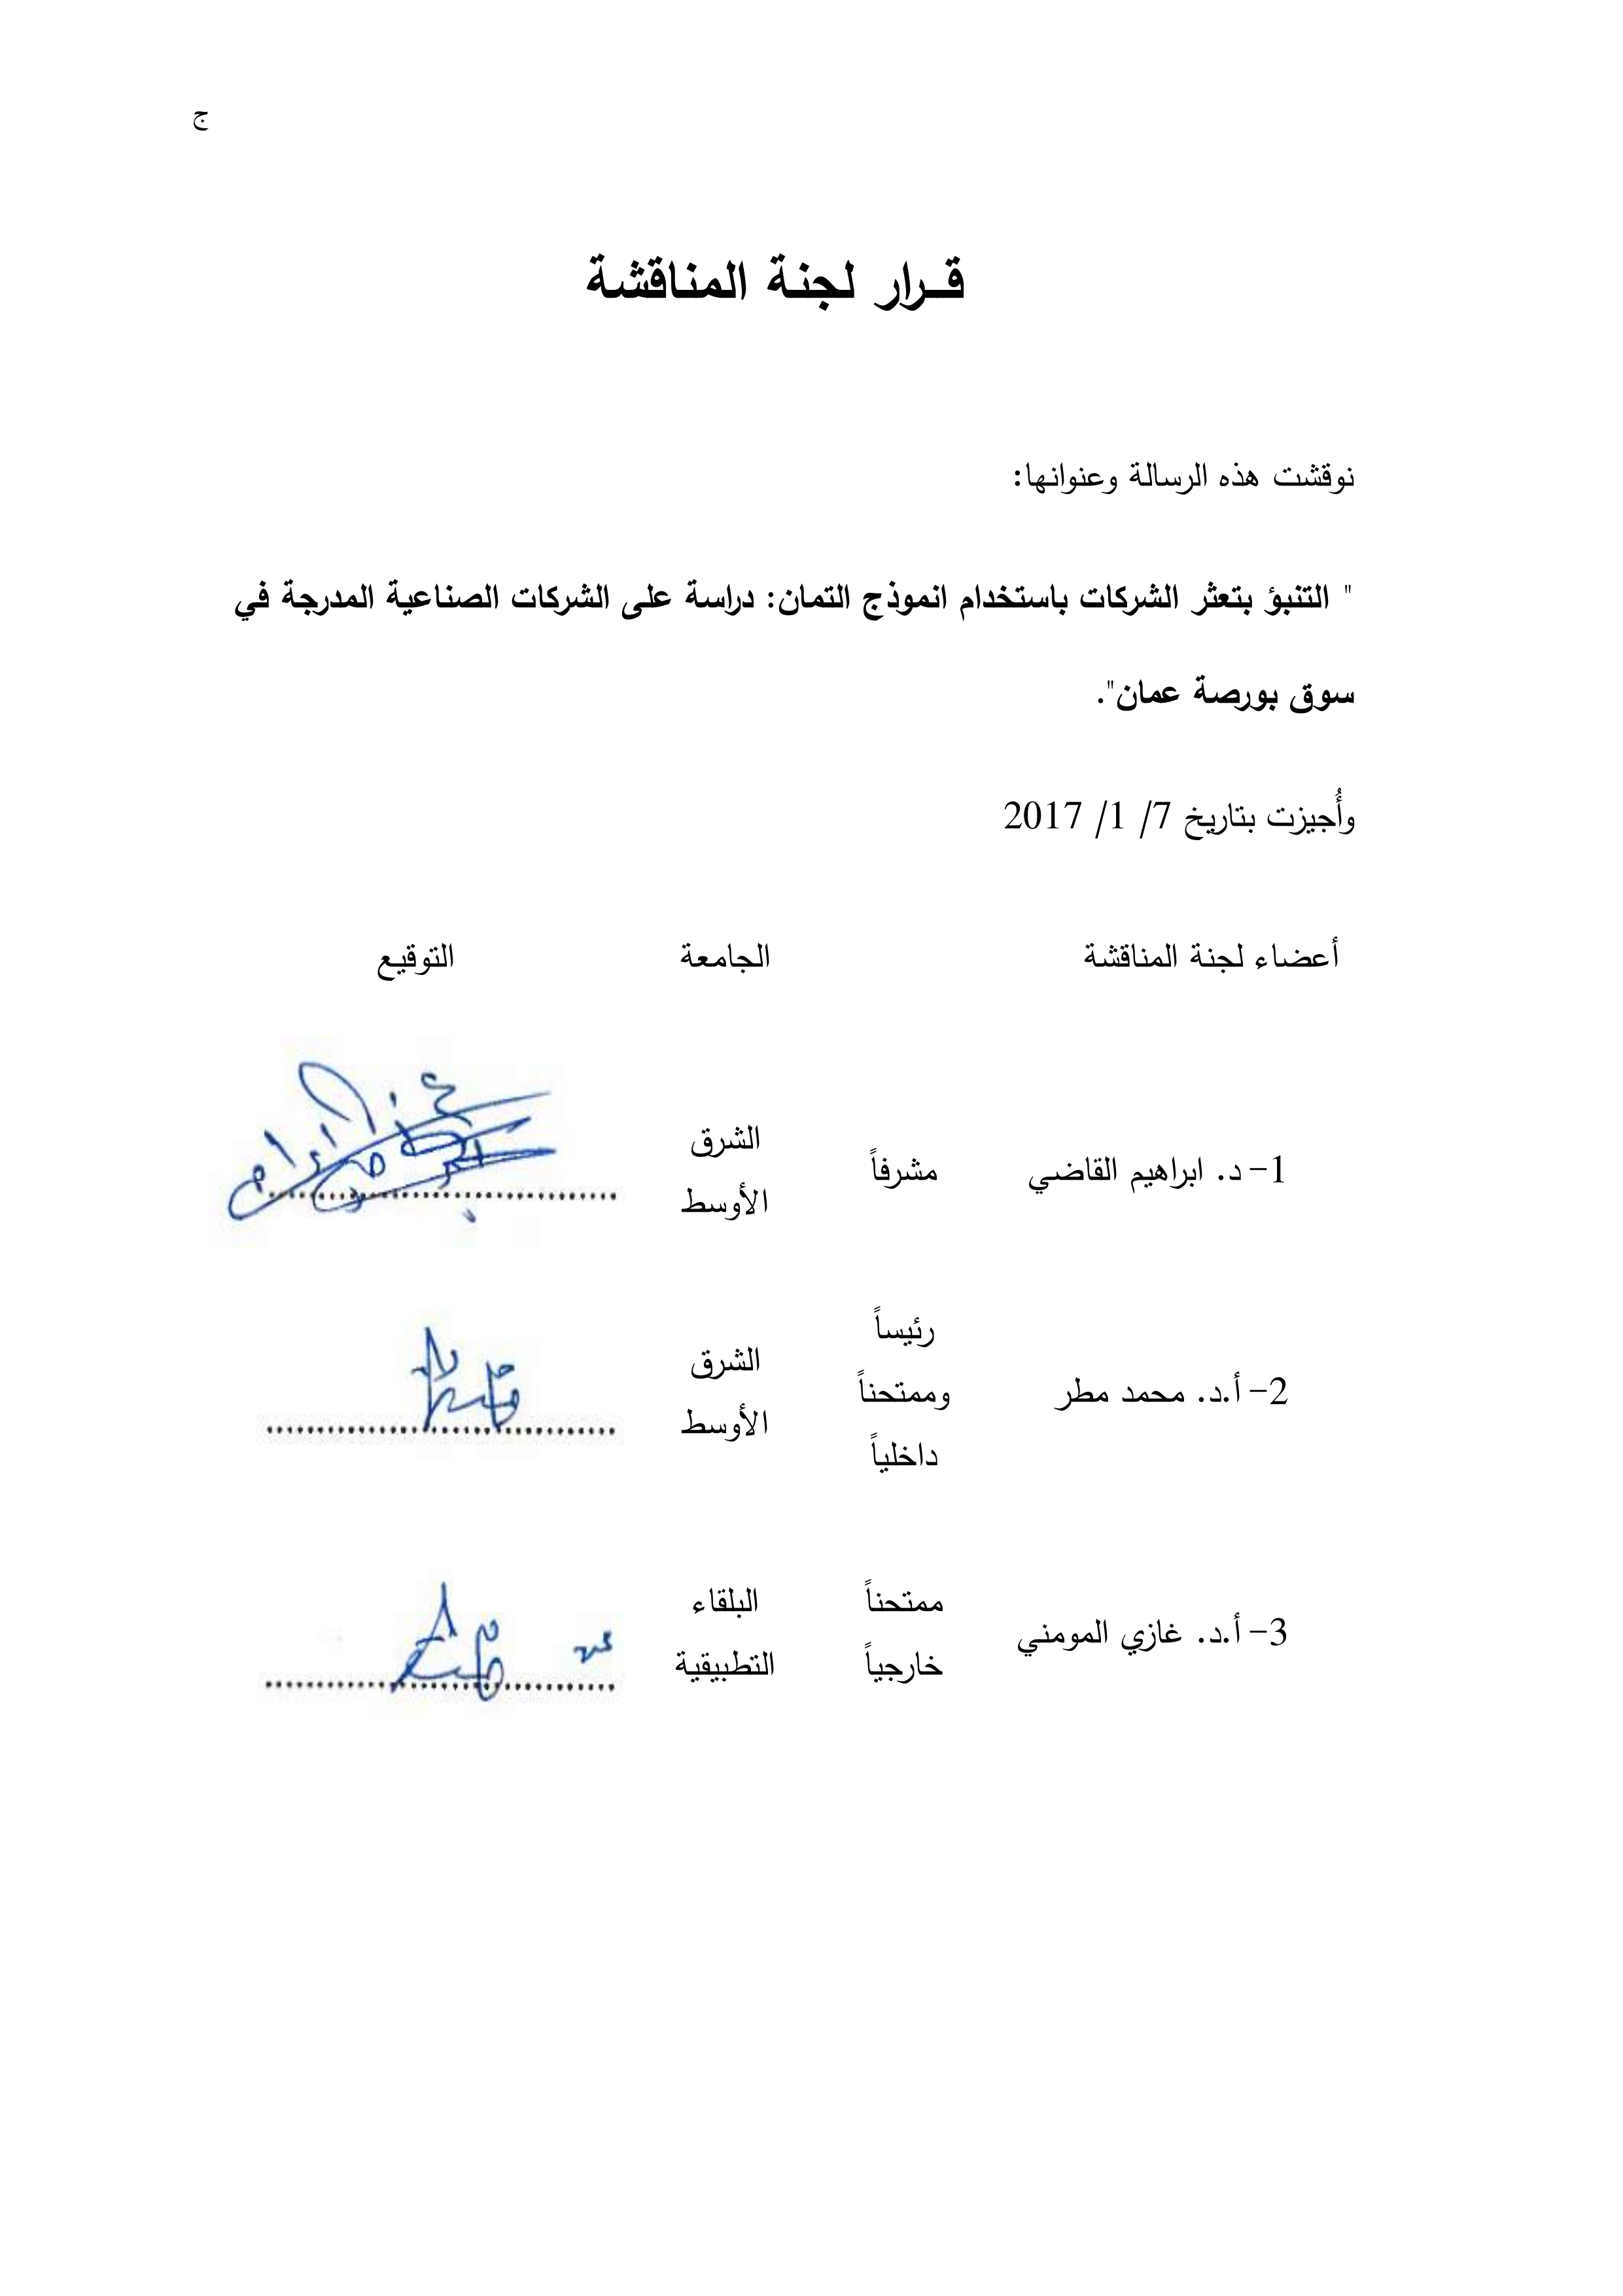 ج
قــرار لجنة المناقشة
نوقشت هذه الرسالة وعنوانها:
" التنبؤ بتعثر الشركات باستخدام انموذج التمان: دراسة على الشركات الصناعية المدرجة في
سوق بورصة عمان".
وأُجيزت بتاريخ 7/ 1/ 2017
أعضاء لجنة المناقشة الجامعة التوقيع
1- د. ابراهيم القاضي مشرفاً الشرق
الأوسط
2- أ.د. محمد مطر رئيساً
وممتحناً
داخلياً
الشرق
الأوسط
3- أ.د. غازي المومني ممتحناً
خارجياً
البلقاء
التطبيقية